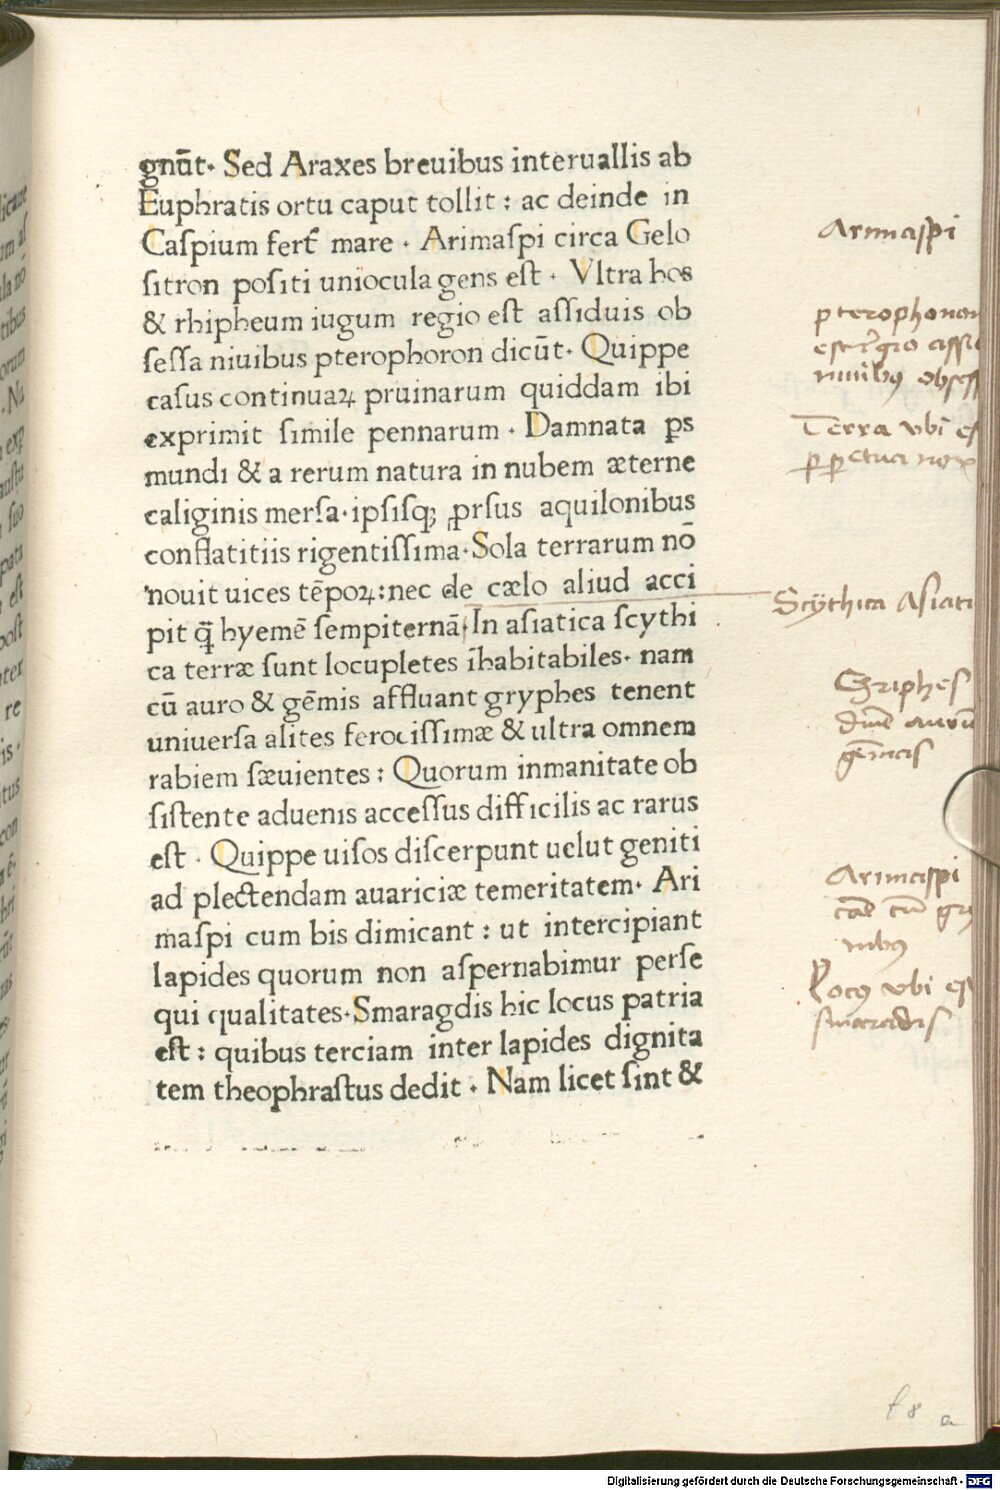 gnūt. Sed Araxes breuibus interuallis ab
Euphratis ortu caput tollit : ac deinde in
Caſpium fert᷑ mare . Arimaſpi circa Gelo
ſitron poſiti uniocula gens eſt . Vltra hos
& rhipheum iugum regio eſt aſſiduis ob
ſeſſa niuibus pterophoron dicūt. Quippe
caſus continuaꝝ pruinarum quiddam ibi
exprimit ſimile pennarum . Damnata ꝑs
mundi & a rerum natura in nubem æterne
caliginis merſa. ipſiſqꝫ ꝓrſus aquilonibus
conflatitiis rigentiſſima. Sola terrarum nō
nouit uices tēpoꝝ: nec de cælo aliud acci
pit q̄ hyemē ſempiternā. In aſiatica ſcythi
ca terræ ſunt locupletes īhabitabiles. nam
cū auro & gēmis affluant gryphes tenent
uniuerſa alites ferociſſimæ & ultra omnem
rabiem ſæuientes : Quorum inmanitate ob
ſiſtente aduenis acceſſus difficilis ac rarus
eſt . Quippe uiſos diſcerpunt uelut geniti
ad plectendam auariciæ temeritatem. Ari
maſpi cum bis dimicant : ut intercipiant
lapides quorum non aſpernabimur perſe
qui qualitates. Smaragdis hic locus patria
eſt : quibus terciam inter lapides dignita
tem theophraſtus dedit . Nam licet ſint &
Arimaſpi
pterophoron
niuibꝰ obſeſſ
Terra vbi eſ
ꝑꝑetua nox
Scÿthica Aſiati
Griphes
gēmas
Arimaſpi
cū gry
Locꝰ vbi eſ
ſmaradis
f 8 a
Digitalisierung gefördert durch die Deutsche Forschungsgemeinschaft - DFG